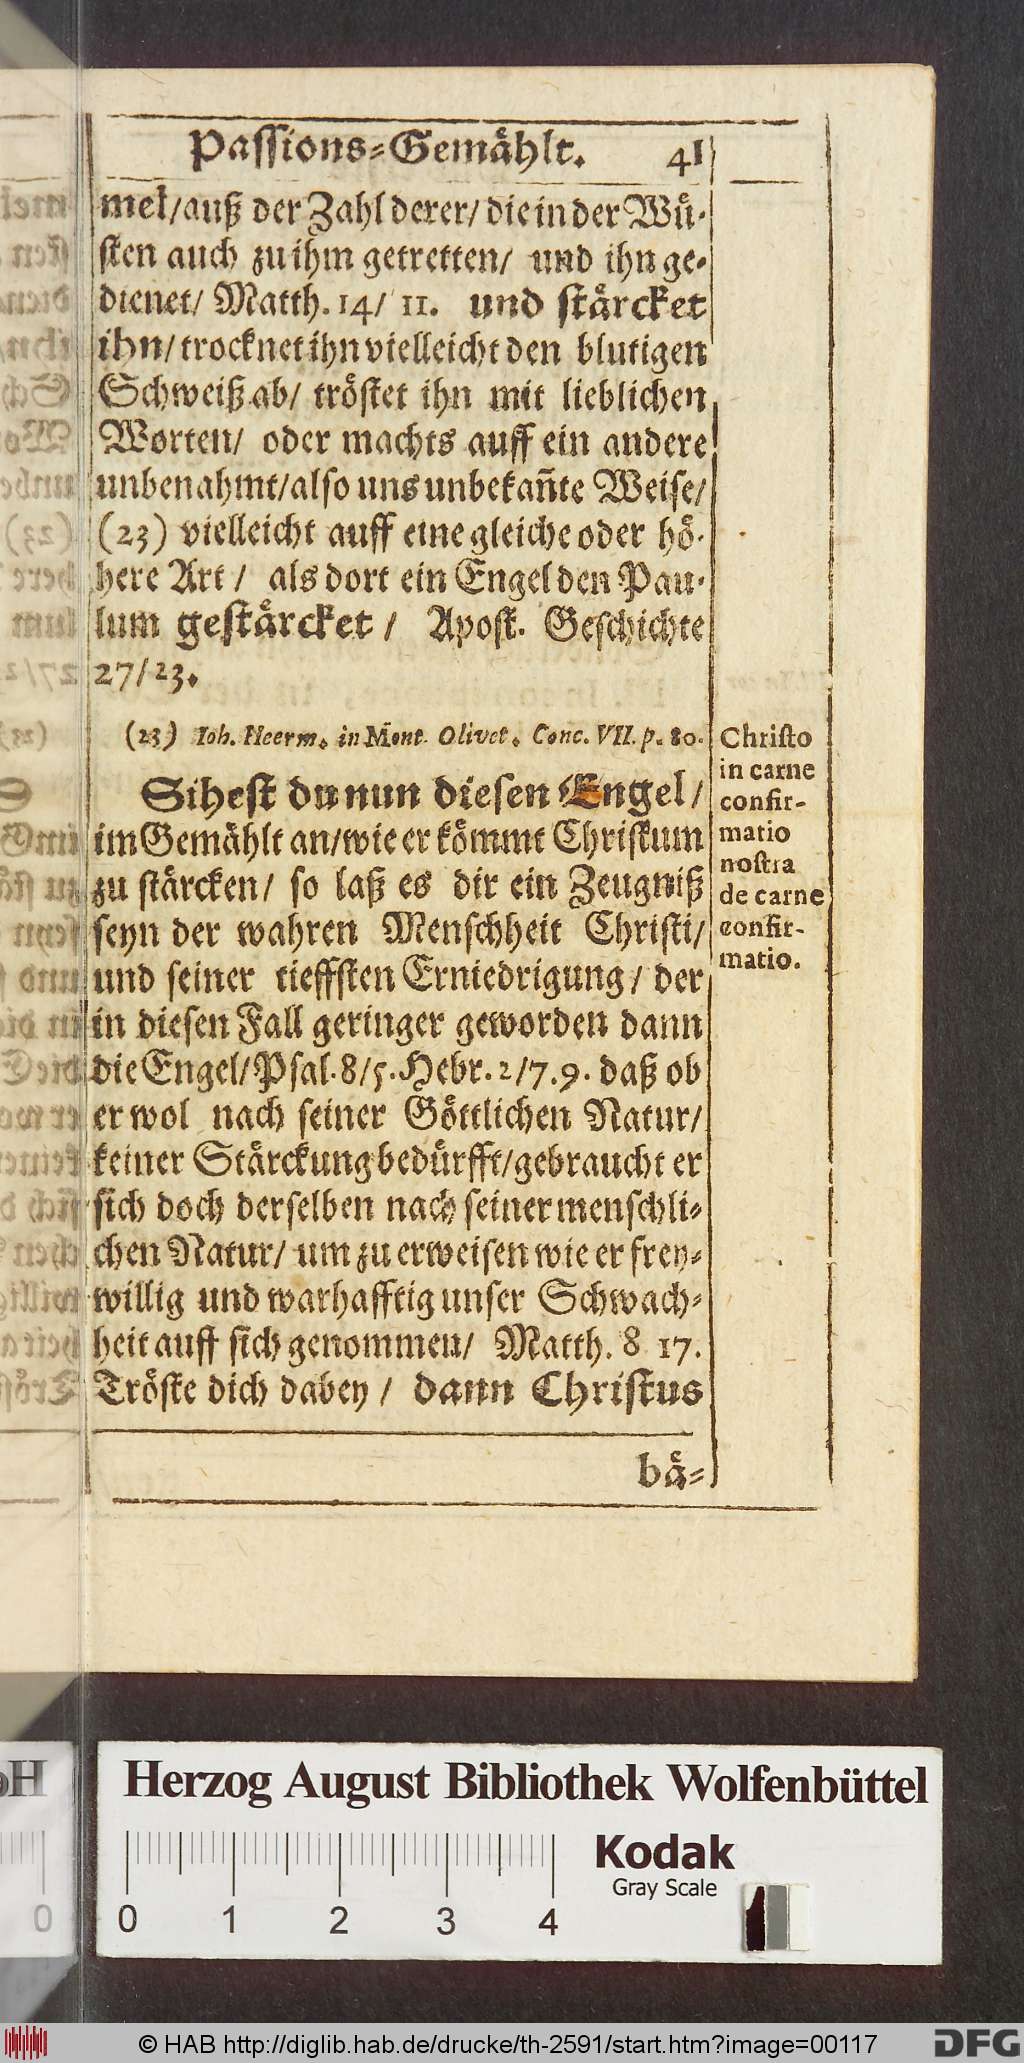 Passions-Gemählt. 41
mel/auß der Zahl derer/ die in der Wü-
sten auch zu ihm getretten/ und ihn ge-
dienet/ Matth. 14/ 11. und stärcket
ihn/ trocknet ihn vielleicht den blutigen
Schweiß ab/ tröstet ihn mit lieblichen
Worten/ oder machts auff ein andere
unbenahmt/also uns unbekañte Weise/
(23) vielleicht auff eine gleiche oder hö-
here Art / als dort ein Engel den Pau-
lum gestärcket / Apost. Geschichte
27/23.
(23) Ioh. Heerm. in Mont. Olivet. Conc. VII. p. 80.
Sihest du nun diesen Engel/
im Gemählt an/wie er kömmt Christum
zu stärcken/ so laß es dir ein Zeugniß
seyn der wahren Menschheit Christi/
und seiner tieffsten Erniedrigung/ der
in diesen Fall geringer geworden dann
die Engel/Psal. 8/5. Hebr. 2/7.9. daß ob
er wol nach seiner Göttlichen Natur/
keiner Stärckung bedürfft/gebraucht er
sich doch derselben nach seiner menschli-
chen Natur/ um zu erweisen wie er frey-
willig und warhafftig unser Schwach-
heit auff sich genommen/ Matth. 8 17.
Tröste dich dabey / dann Christus
bä-
Christo
in carne
confir-
matio
nostra
de carne
confir-
matio.
Herzog August Bibliothek Wolfenbüttel
Kodak
Gray Scale
0 1 2 3 4
© HAB http://diglib.hab.de/drucke/th-2591/start.htm?image=00117
DFG